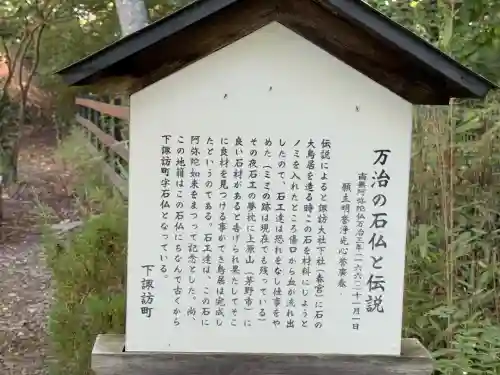 万治の石仏と伝説
南無阿弥陀仏万治三年(一六六〇)十一月一日
願主明誉浄光心誉廣春
伝説によると諏訪大社下社(春宮)に石の
大鳥居を造る時この石を材料にしようと
ノミを入れたところ傷口から血が流れ出
したので、石工達は恐れをなし仕事をや
めた。(ノミの跡は現在でも残っている)
その夜石工の夢枕に上原山(茅野市)に
良い石材があると告げられ果たしてそこ
に良材を見つける事ができ鳥居は完成し
たというのである。石工達は、この石に
阿弥陀如来をまつって記念とした。尚、
この地籍はこの石仏にちなんで古くから
下諏訪町字石仏となっている。
下諏訪町